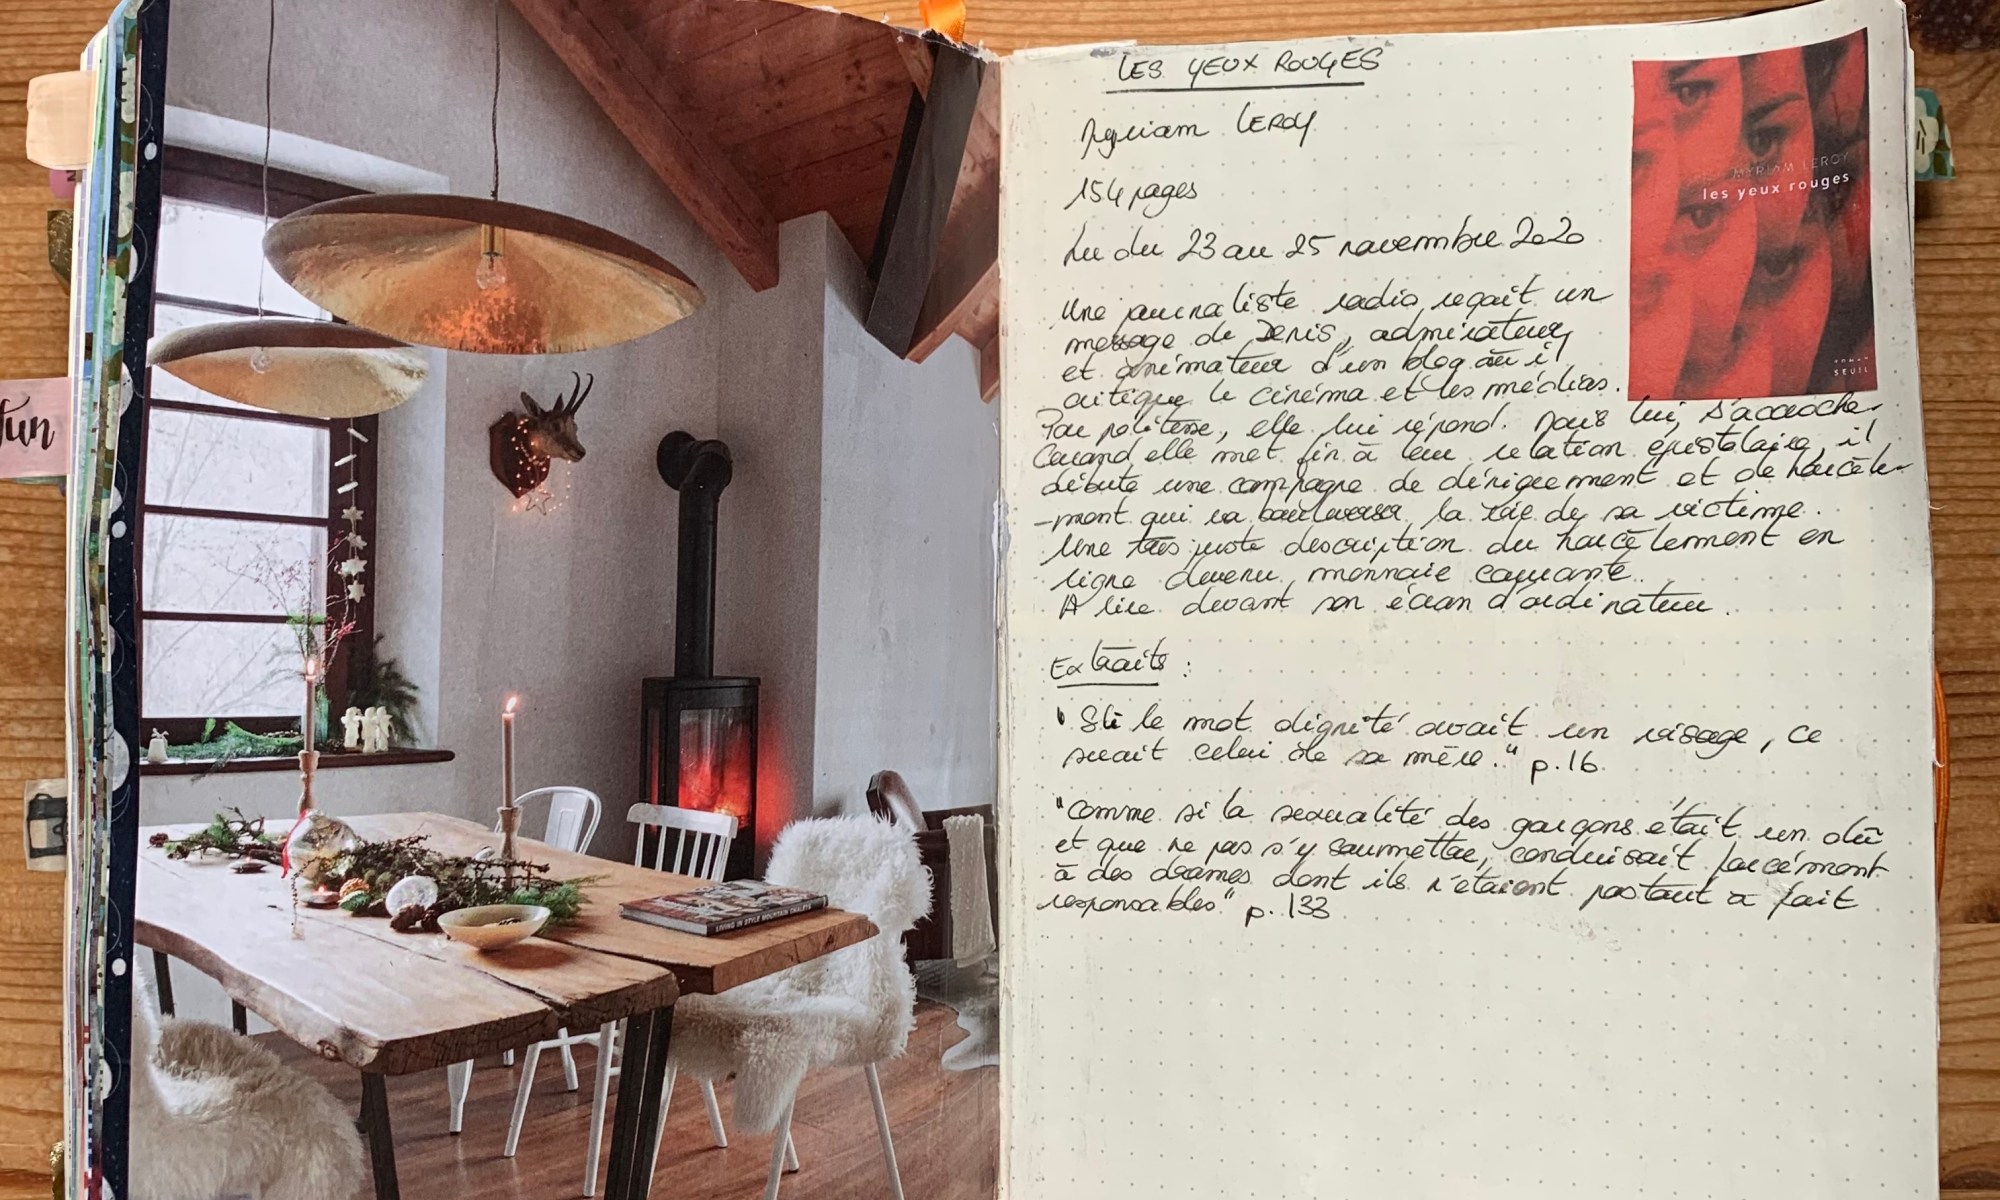 fun
LIVING IN STYLE MOUNTAIN CHALETS
LES YEUX ROUGES
Myriam LEROY
154 pages
Lu du 23 au 25 novembre 2020
MYRIAM LEROY
les yeux rouges
ROMAN
SEUIL
Une journaliste radio reçoit un
message de Denis, admirateur
et animateur d'un blog où il
critique le cinéma et les médias.
Par politesse, elle lui répond. Mais lui, s'accroche.
Quand elle met fin à leur relation épistolaire, il
débute une campagne de dénigrement et de harcèle-
-ment qui va bouleverser la vie de sa victime.
Une très juste description du harcèlement en
ligne devenu monnaie courante.
A lire devant son écran d'ordinateur.
Extraits :
"Si le mot dignité avait un visage, ce
serait celui de sa mère." p.16
"Comme si la sexualité des garçons était un dû
et que ne pas s'y soumettre, conduisait forcément
à des drames dont ils n'étaient pas tout à fait
responsables" p. 133